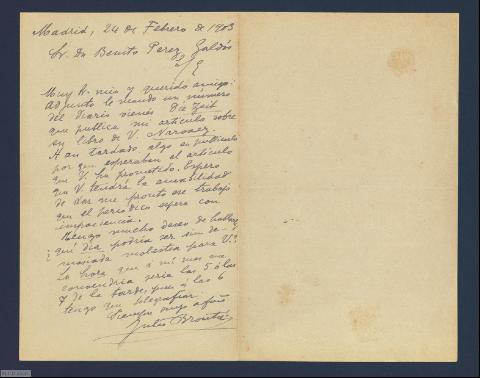 Madrid, 24 de Febrero de 1903
Sr. Dn Benito Perez Galdós
Muy Sr. mio y querido amigo:
Adjunto le mando un número
del diario vienés Die Zeit
que publica mi artículo sobre
su libro de V. Narvaez.
Han tardado algo en publicarlo
por que esperaban el artículo
que V. ha prometido. Espero
que V. tendrá la amabilidad
de dar me pronto ese trabajo
que el periodico espera con
impaciencia.
Tengo mucho deseo de
¿qué dia podría ser sin de-
masiada molestia para V.?
La hora que á mi mas me
convendria seria las 5 ó las
7 de la tarde, pues á las 6
tengo que telegrafiar.
Siempre suyo afmo
Julio Broutá